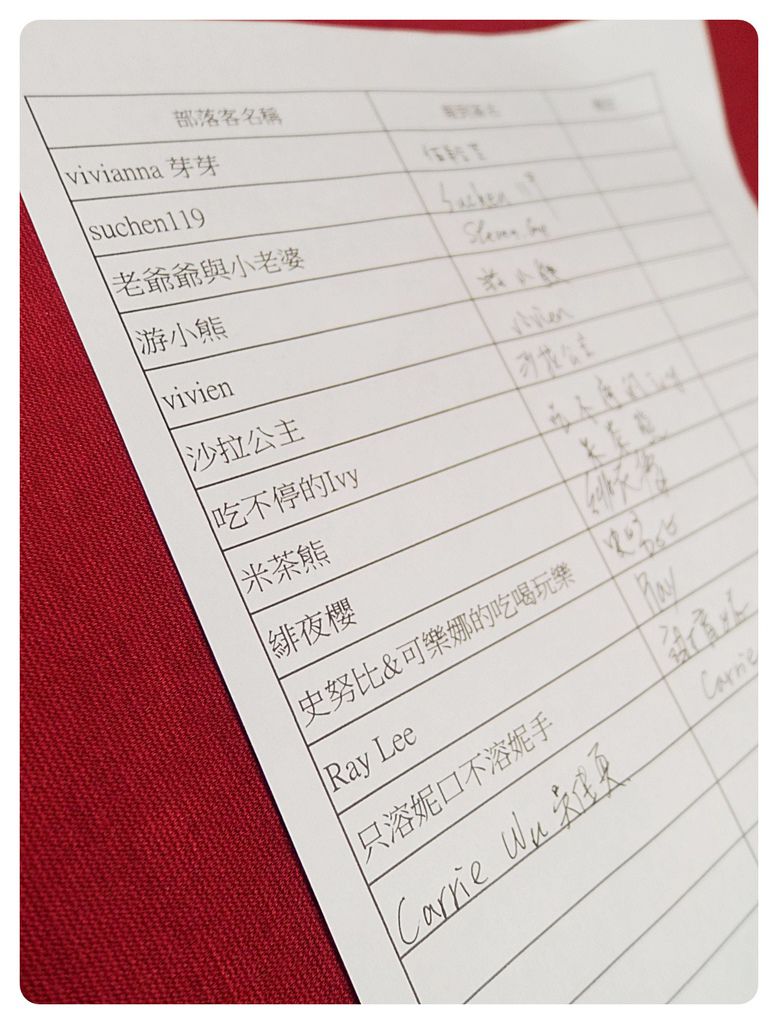 部落客名稱
vivianna 芽芽
suchen119 Suchen 119
老爺爺與小老婆
游小熊 游小熊
vivien vivien
沙拉公主 沙拉公主
吃不停的Ivy 吃不停的Ivy
米茶熊 米茶熊
緋夜櫻 緋夜櫻
史努比&可樂娜的吃喝玩樂
Ray Lee Ray
只溶妮口不溶妮手
Carrie Wu Carrie